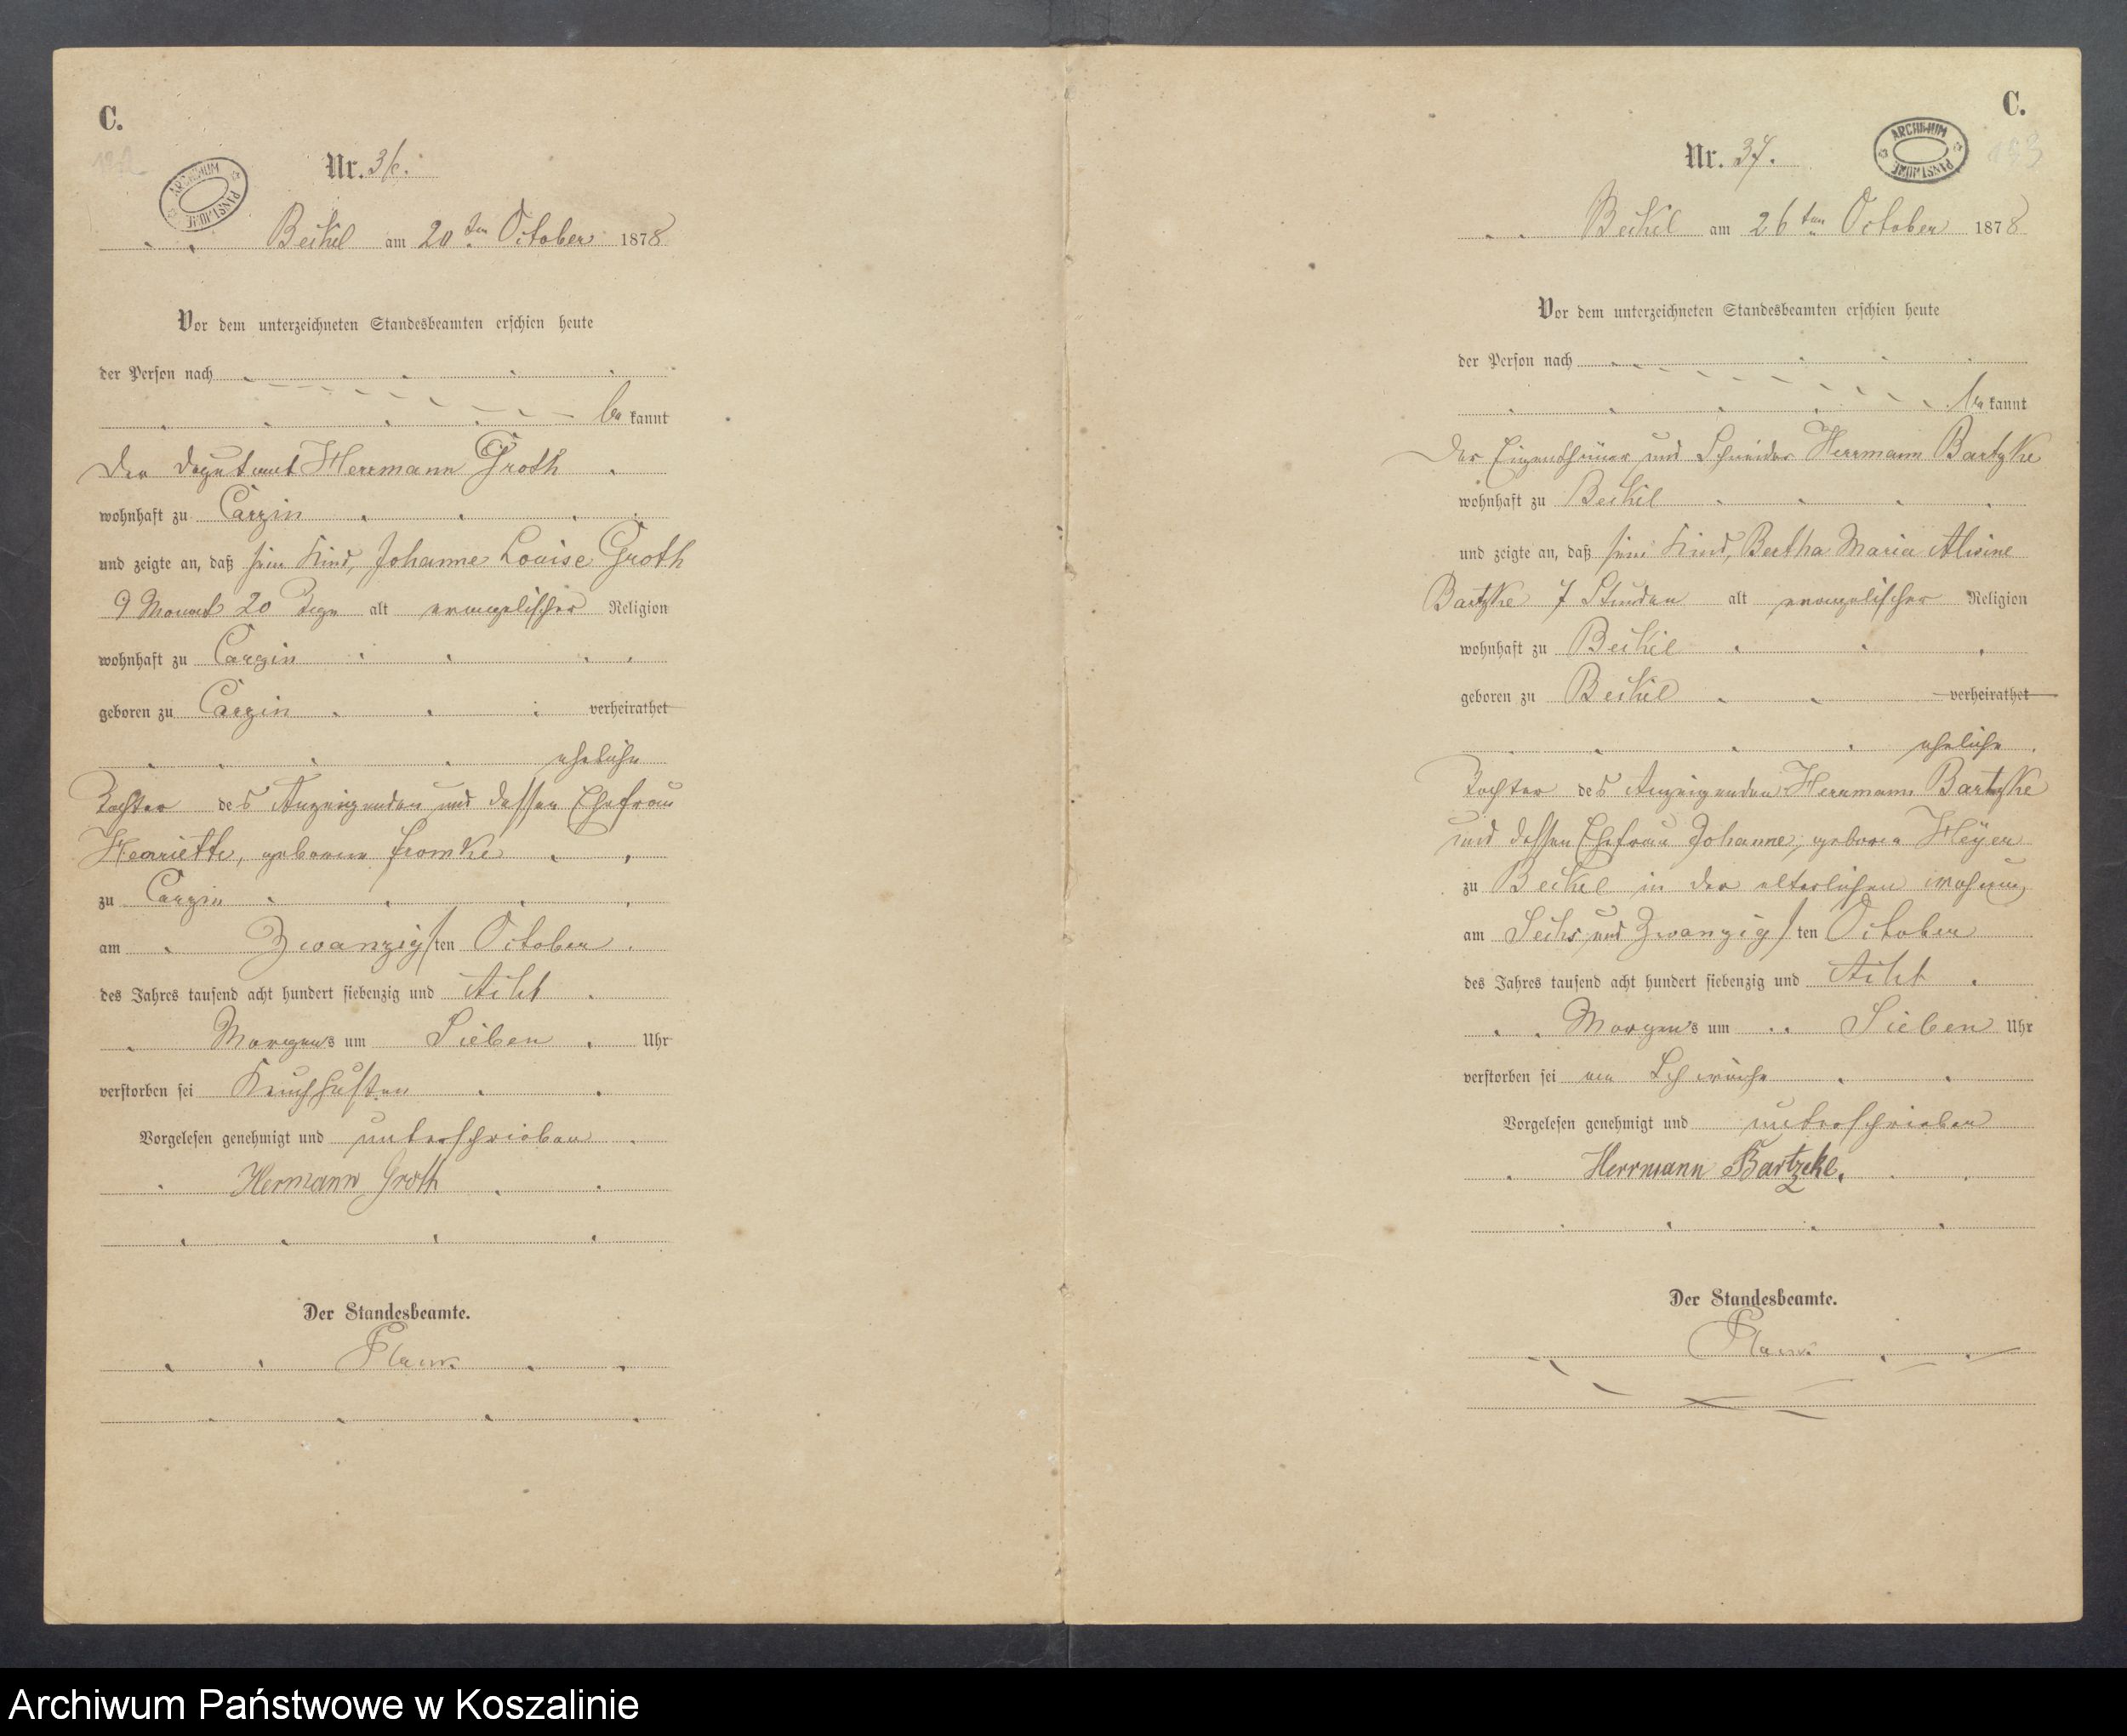 C.
ARCHIWUM PAŃSTWOWE
Nr. 36.
Beckel am 20ten October 1878
Vor dem unterzeichneten Standesbeamten erschien heute
der Person nach
be kannt
Der Deputant Herrmann Groth
wohnhaft zu Carzin
und zeigte an, daß sein Kind, Johanne Louise Groth
9 Monat 20 Tage alt evangelischer Religion
wohnhaft zu Carzin
geboren zu Carzin verheirathet
eheliche
Tochter des Anzeigenden und dessen Ehefrau
Henriette, geborene Fromke
zu Carzin
am Zwanzigsten October
des Jahres tausend acht hundert siebenzig und Acht
Morgens um Sieben Uhr
verstorben sei Keuchhusten
Vorgelesen genehmigt und unterschrieben
Hermann Groth
Der Standesbeamte.
C.
ARCHIWUM PAŃSTWOWE
Nr. 37.
Beckel am 26ten October 1878
Vor dem unterzeichneten Standesbeamten erschien heute
der Person nach
be kannt
Der Eigenthümer und Schneider Herrmann Bartzke
wohnhaft zu Beckel
und zeigte an, daß sein Kind, Bertha Maria Alwine
Bartzke 7 Stunden alt evangelischer Religion
wohnhaft zu Beckel
geboren zu Beckel verheirathet
eheliche
Tochter des Anzeigenden Herrmann Bartzke
und dessen Ehefrau Johanne, geborne Heyer
zu Beckel in der elterlichen wohnung
am Sechs und Zwanzigsten October
des Jahres tausend acht hundert siebenzig und Acht
Morgens um Sieben Uhr
verstorben sei an Schwäche
Vorgelesen genehmigt und unterschrieben
Herrmann Bartzke.
Der Standesbeamte.
Archiwum Państwowe w Koszalinie